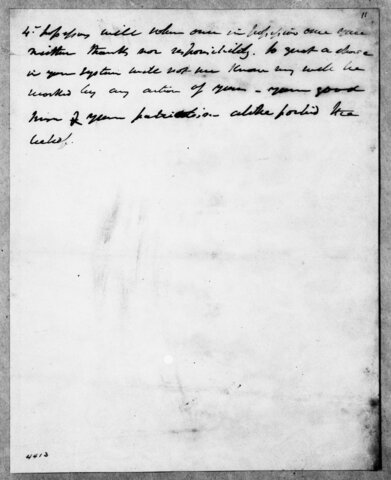 11
will when once in possession owe you
neither thanks nor responsibility. So great a change
in your system will not we know well be
worked by any action of yours - your good
sense & your patriotism alike forbid the
belief.
4413